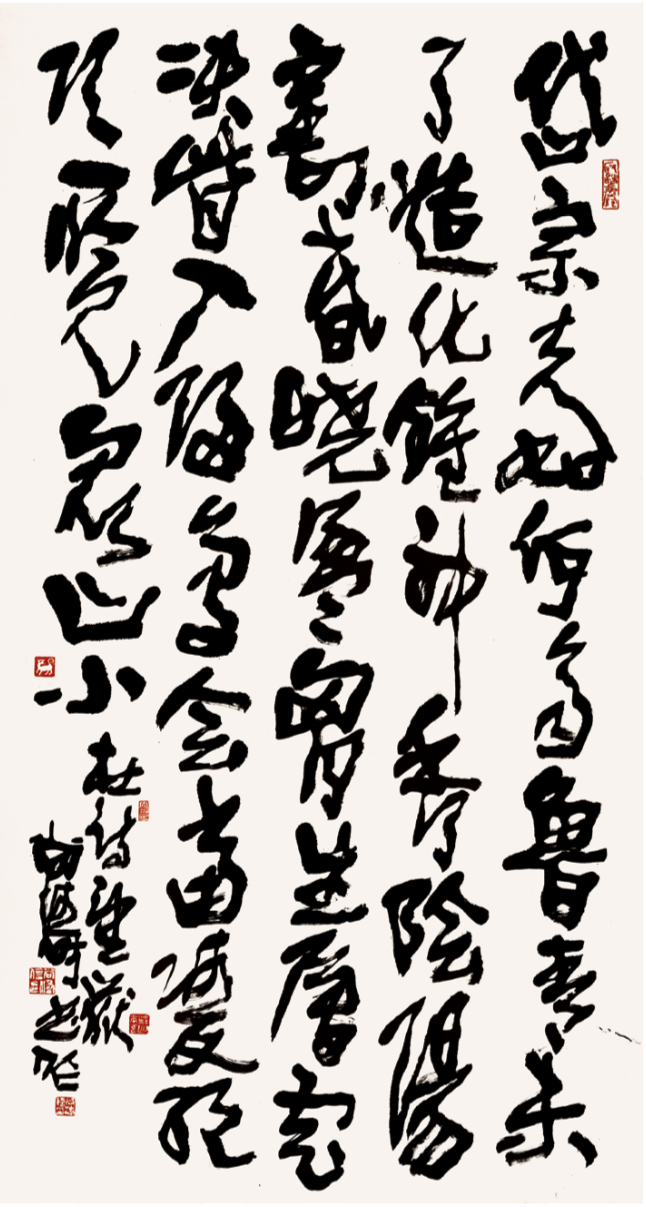 岱宗夫如何齊魯青未
了造化鍾神秀陰陽
割昏曉盪胸生層雲
決眥入歸鳥會當凌絕
頂一覽衆山小
杜詩望嶽